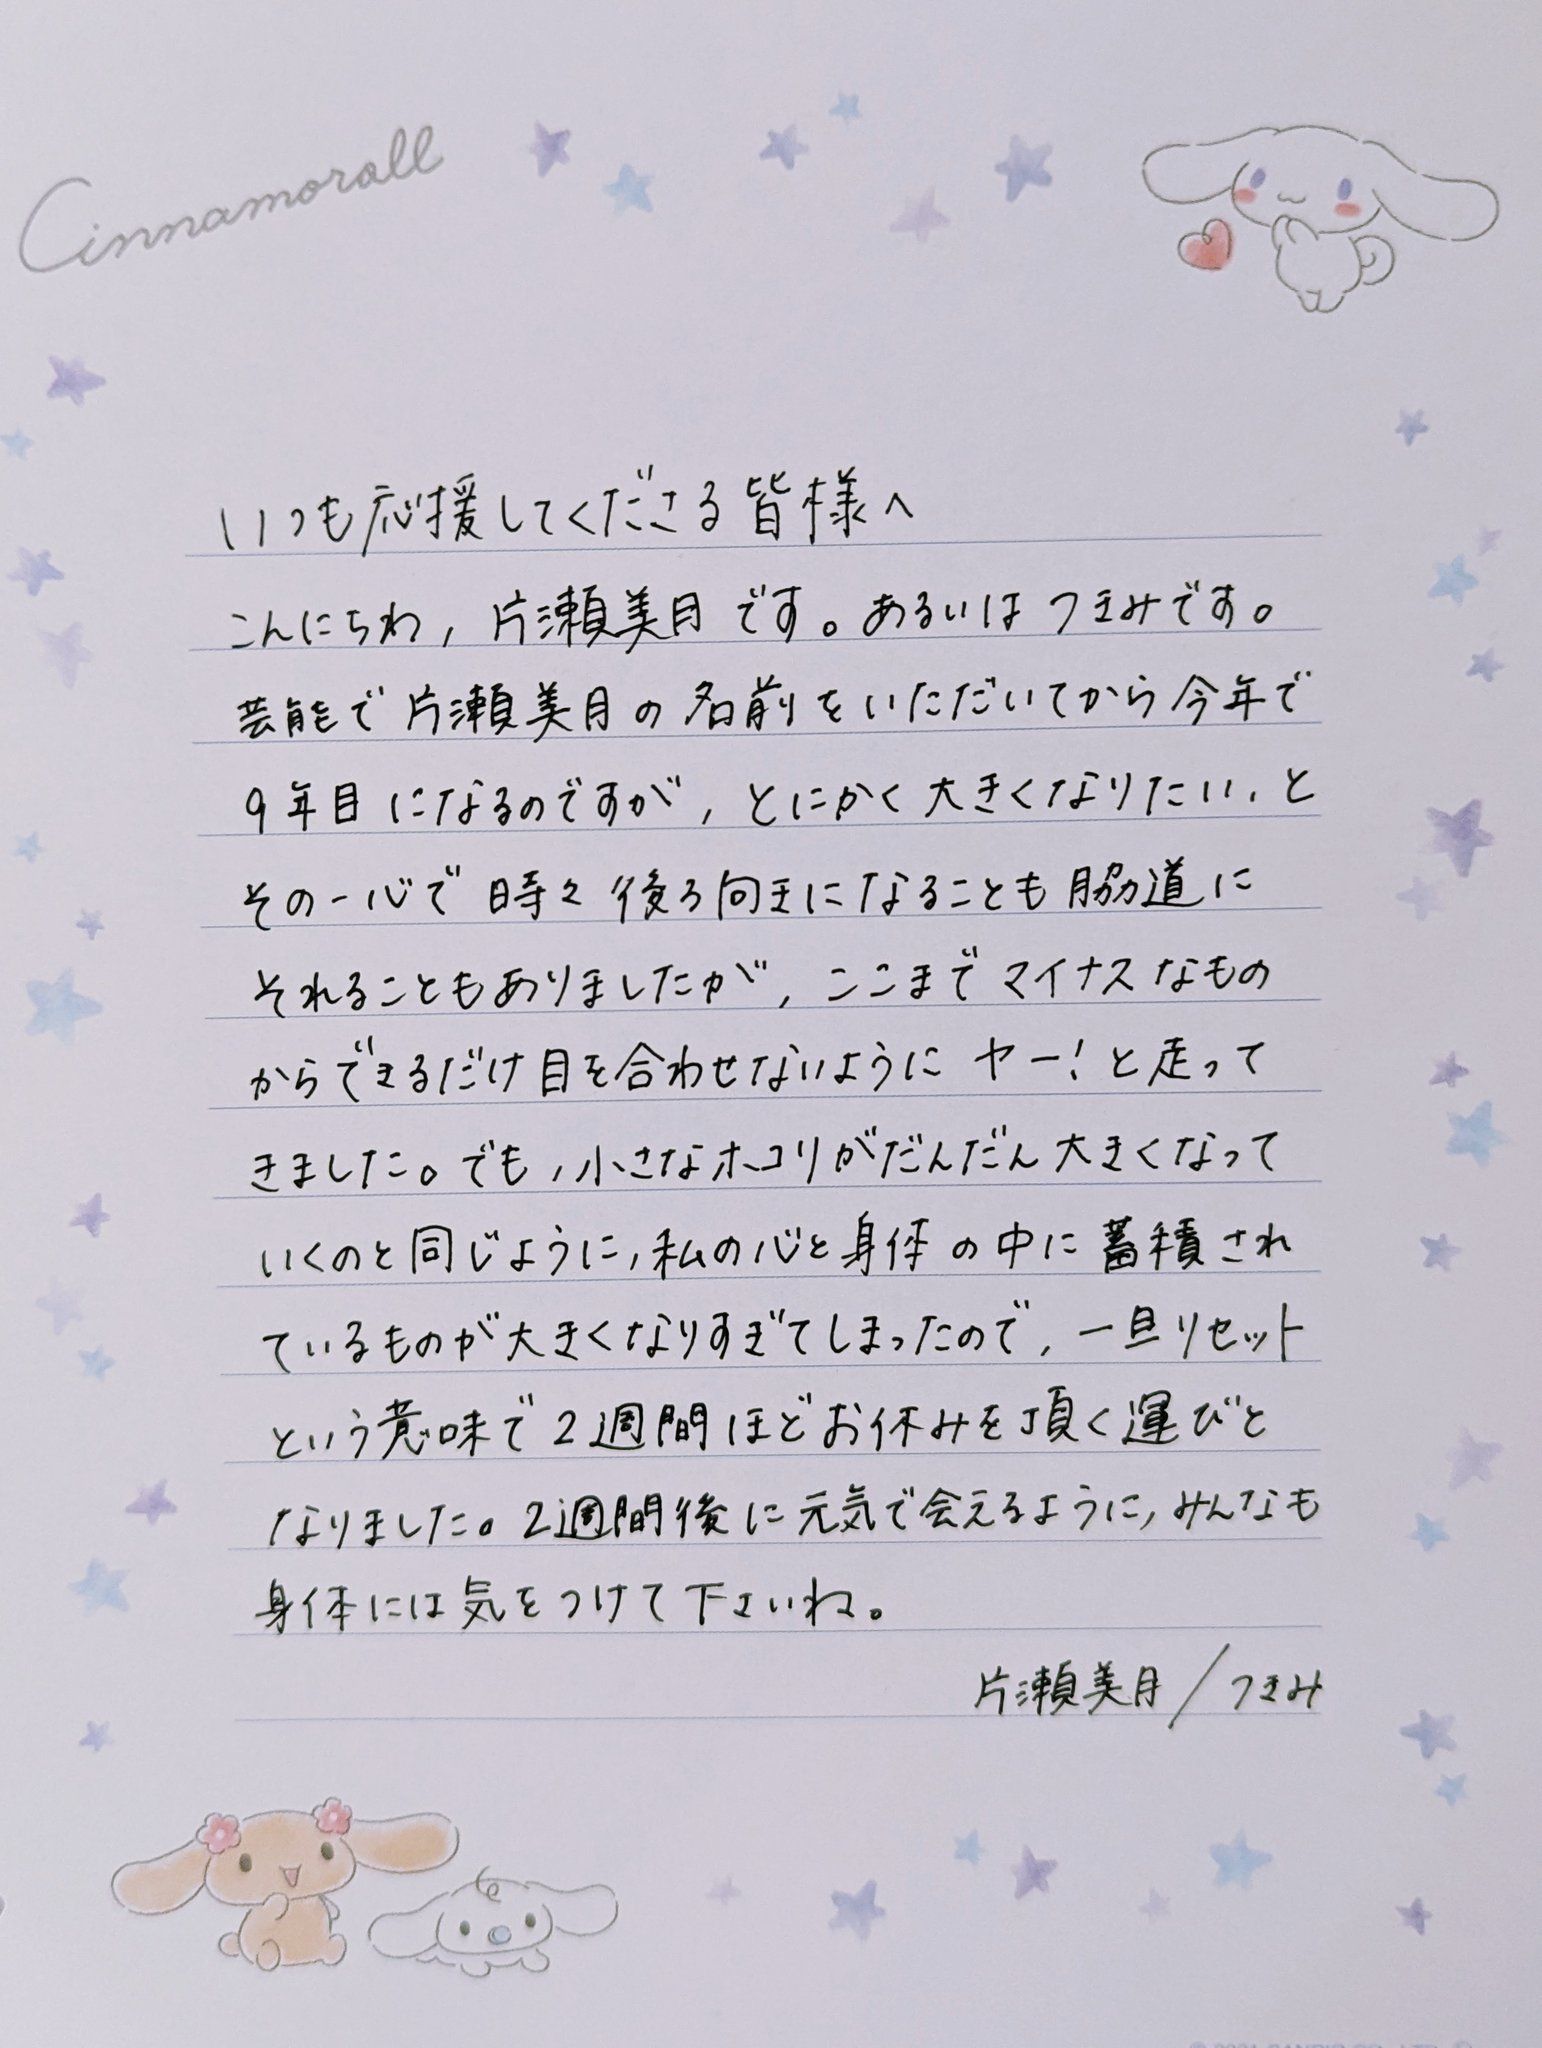 Cinnamoroll
いつも応援してくださる皆様へ
こんにちわ, 片瀬美月です。あるいはつきみです。
芸能で片瀬美月の名前をいただいてから今年で
9年目になるのですが, とにかく大きくなりたい、と
その一心で時々後ろ向きになることも脇道に
それることもありましたが, ここまでマイナスなもの
からできるだけ目を合わせないようにヤー!と走って
きました。でも,小さなホコリがだんだん大きくなって
いくのと同じように,私の心と身体の中に蓄積され
ているものが大きくなりすぎてしまったので, 一旦リセット
という意味で2週間ほどお休みを頂く運びと
なりました。2週間後に元気で会えるように,みんなも
身体には気をつけて下さいね。
片瀬美月/つきみ